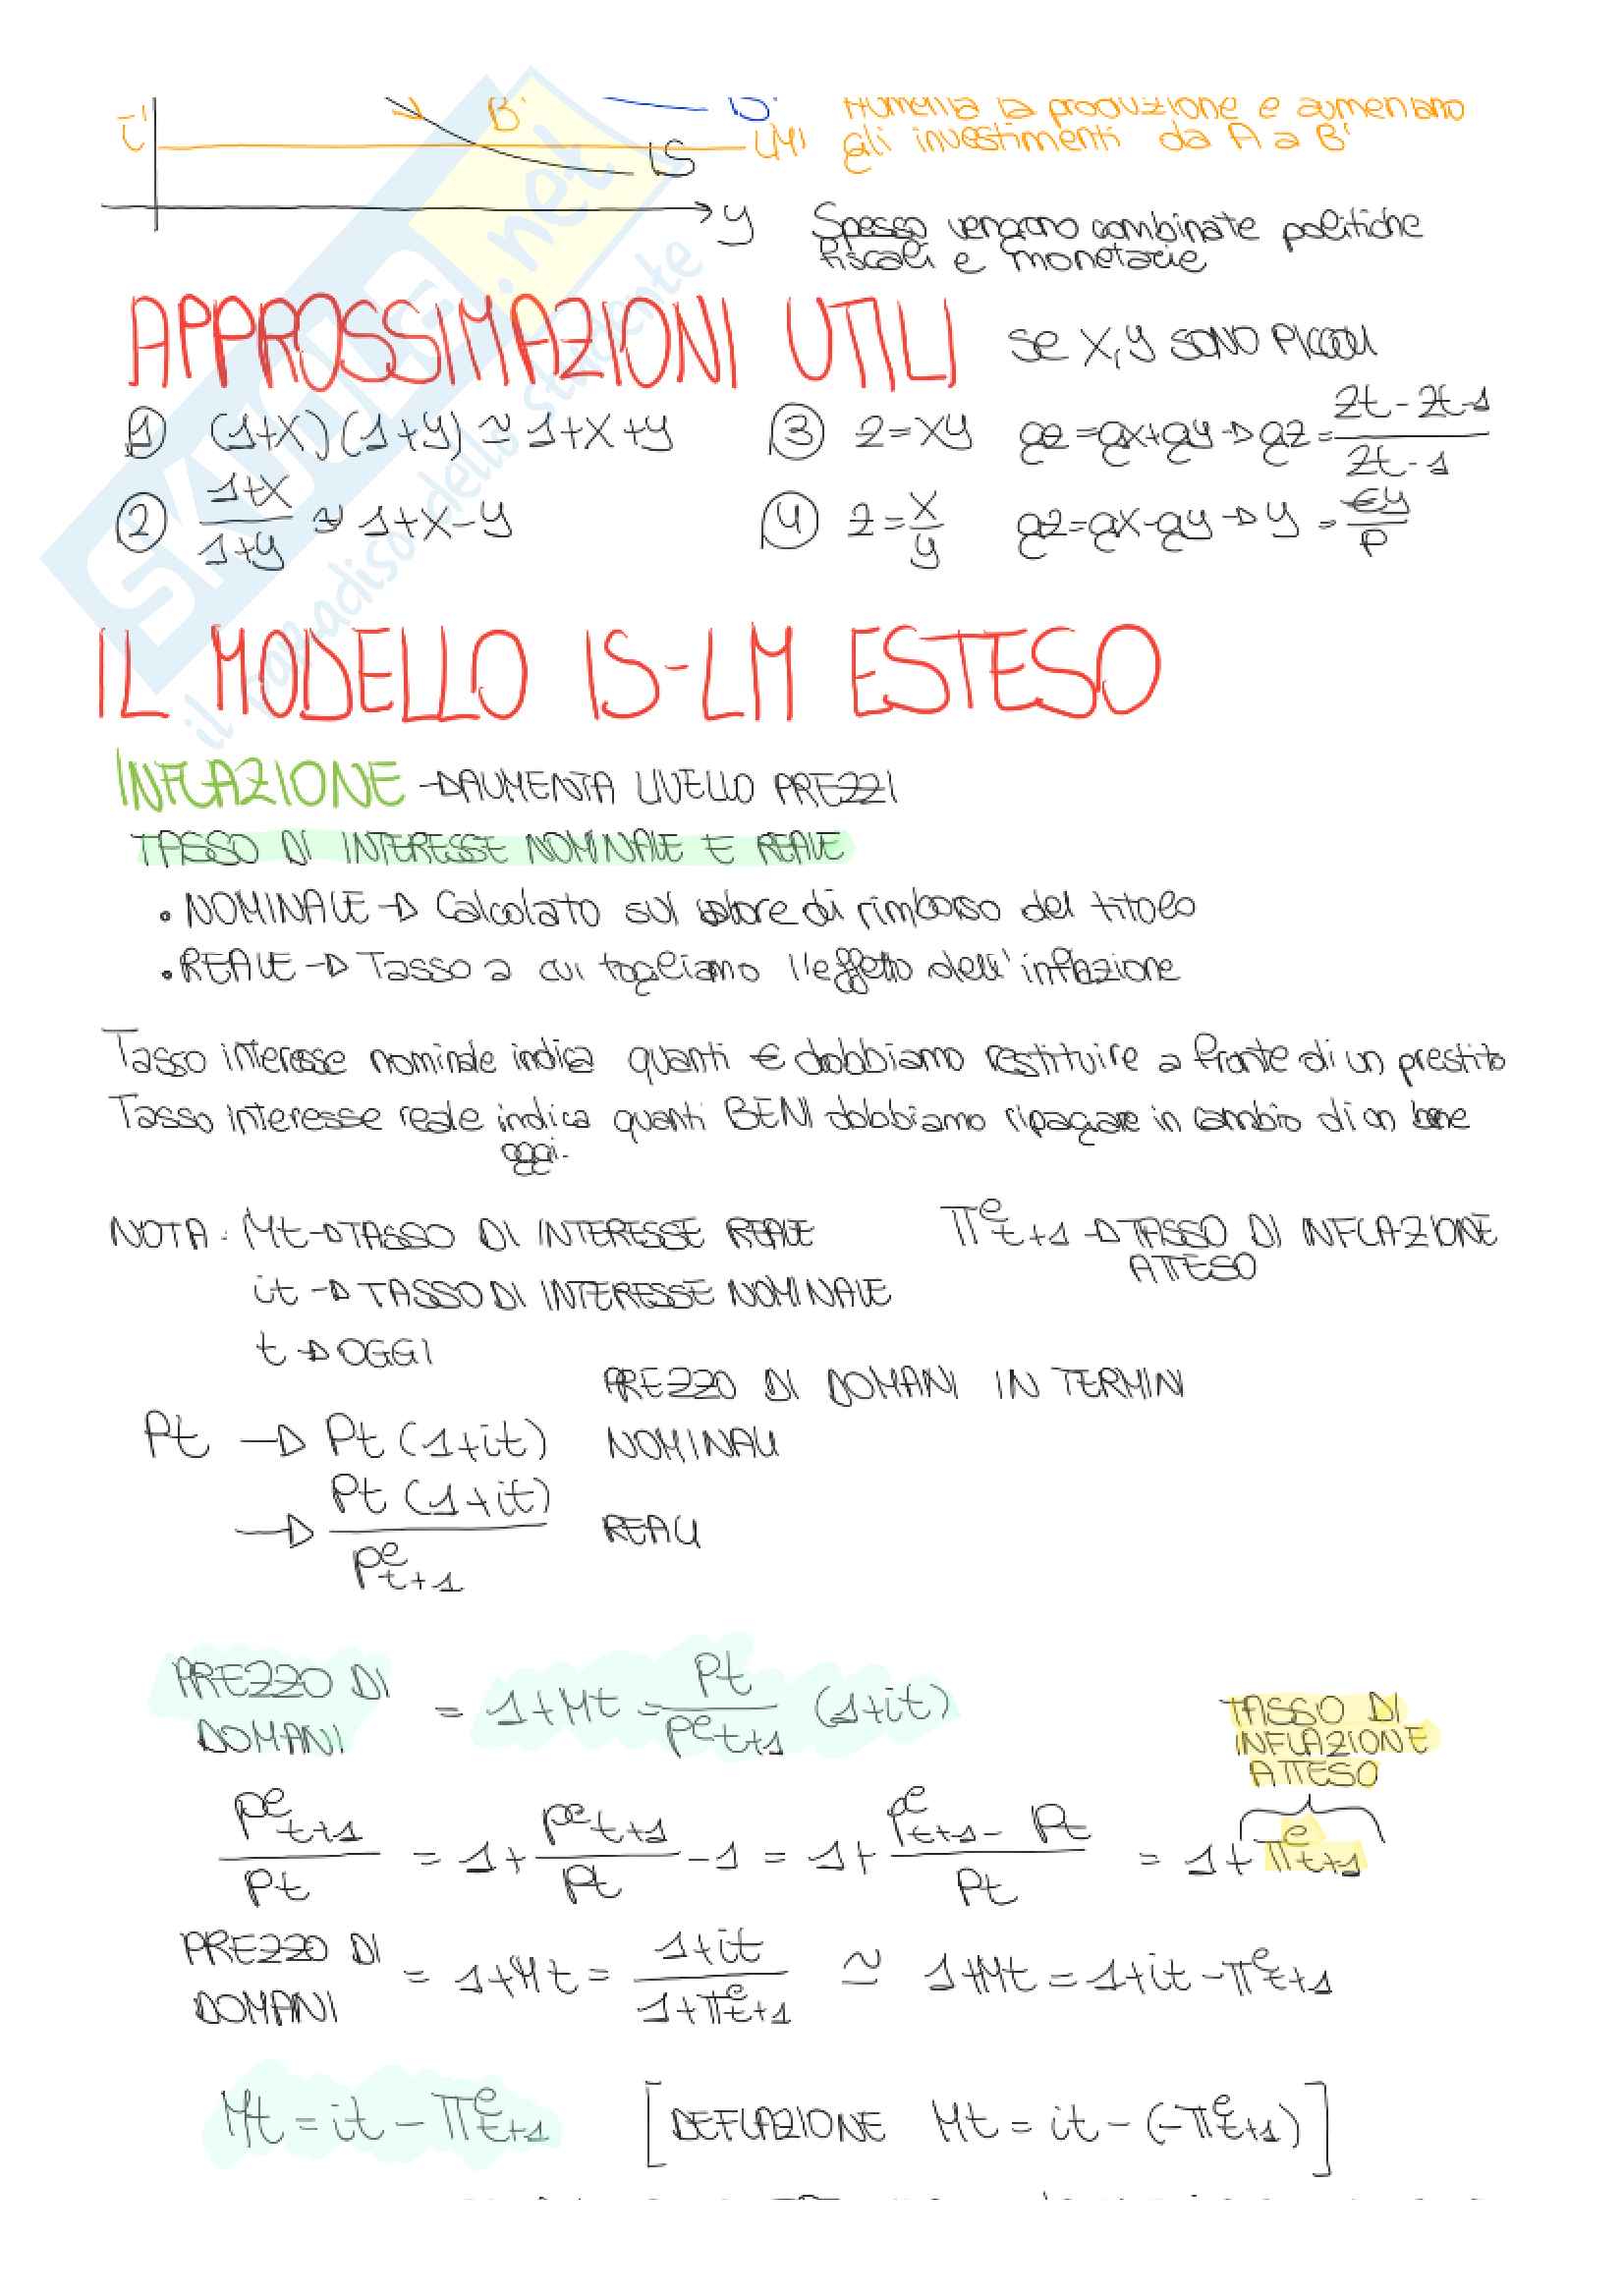 i'
B'
IS
LM'
Aumenta la produzione e aumentano
gli investimenti da A a B'
y
Spesso vengono combinate politiche
fiscali e monetarie
APPROSSIMAZIONI UTILI se x,y SONO PICCOLI
① (1+x)(1+y) ≃ 1+x+y
② (1+x)/(1+y) ≃ 1+x-y
③ z=xy gz=gx+gy → gz = (zt - zt-1)/(zt-1)
④ z=x/y gz=gx-gy → y = €y/P
IL MODELLO IS-LM ESTESO
INFLAZIONE → AUMENTA LIVELLO PREZZI
TASSO DI INTERESSE NOMINALE E REALE
• NOMINALE → Calcolato sul valore di rimborso del titolo
• REALE → Tasso a cui togliamo l'effetto dell'inflazione
Tasso interesse nominale indica quanti € dobbiamo restituire a fronte di un prestito
Tasso interesse reale indica quanti BENI dobbiamo ripagare in cambio di un bene
oggi.
NOTA: Mt → TASSO DI INTERESSE REALE
πᵉt+1 → TASSO DI INFLAZIONE
ATTESO
it → TASSO DI INTERESSE NOMINALE
t → OGGI
PREZZO DI DOMANI IN TERMINI
Pt → Pt (1+it) NOMINALI
→ Pt (1+it)/Pᵉt+1 REALI
PREZZO DI
DOMANI = 1+Mt = Pt/Pᵉt+1 (1+it)
TASSO DI
INFLAZIONE
ATTESO
Pᵉt+1/Pt = 1+ Pᵉt+1/Pt -1 = 1+ (Pᵉt+1 - Pt)/Pt = 1+πᵉt+1
PREZZO DI
DOMANI = 1+Mt = (1+it)/(1+πᵉt+1) ≃ 1+Mt = 1+it-πᵉt+1
Mt = it - πᵉt+1 [DEFLAZIONE Mt = it - (-πᵉt+1)]
SKUOLA.net
il paradiso dello studente